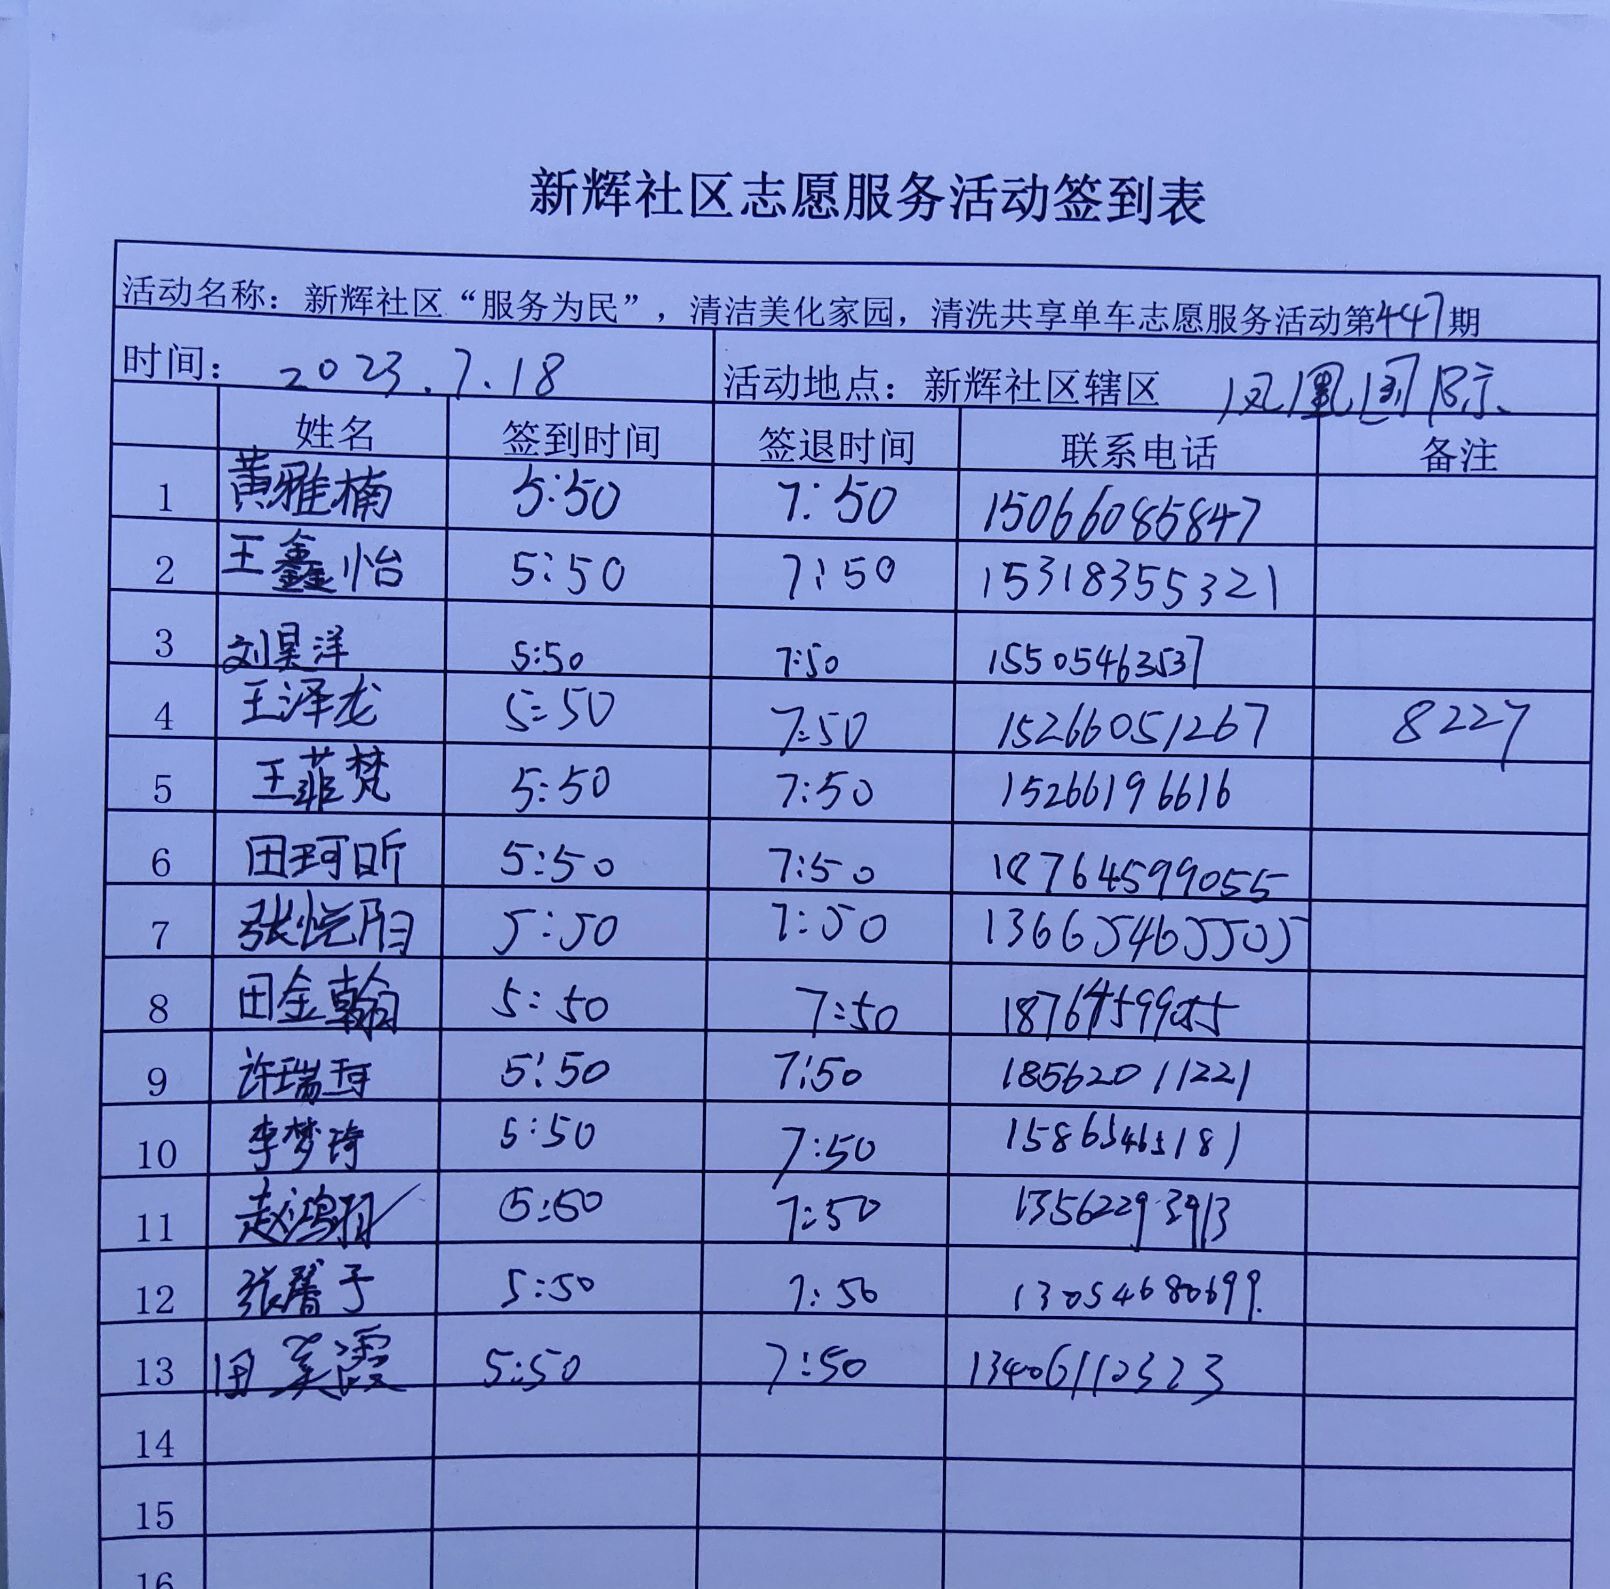 新辉社区志愿服务活动签到表
活动名称：新辉社区“服务为民”，清洁美化家园，清洗共享单车志愿服务活动第447期
时间： 2023.7.18 活动地点：新辉社区辖区 凤凰国际
姓名 签到时间 签退时间 联系电话 备注
1 黄雅楠 5:50 7:50 15066085847
2 王鑫怡 5:50 7:50 15318355321
3 刘昊洋 5:50 7:50 15505463537
4 王泽龙 5:50 7:50 15266051267 8227
5 王菲梵 5:50 7:50 15266196616
6 田珂昕 5:50 7:50 18764599055
7 张悦阳 5:50 7:50 13665465505
8 田金翰 5:50 7:50 18764599055
9 许瑞珂 5:50 7:50 18562011221
10 李梦琦 5:50 7:50 15865465181
11 赵鸿 5:50 7:50 13562293913
12 张馨予 5:50 7:50 13054680699
13 田美霞 5:50 7:50 13406110323
14
15
16